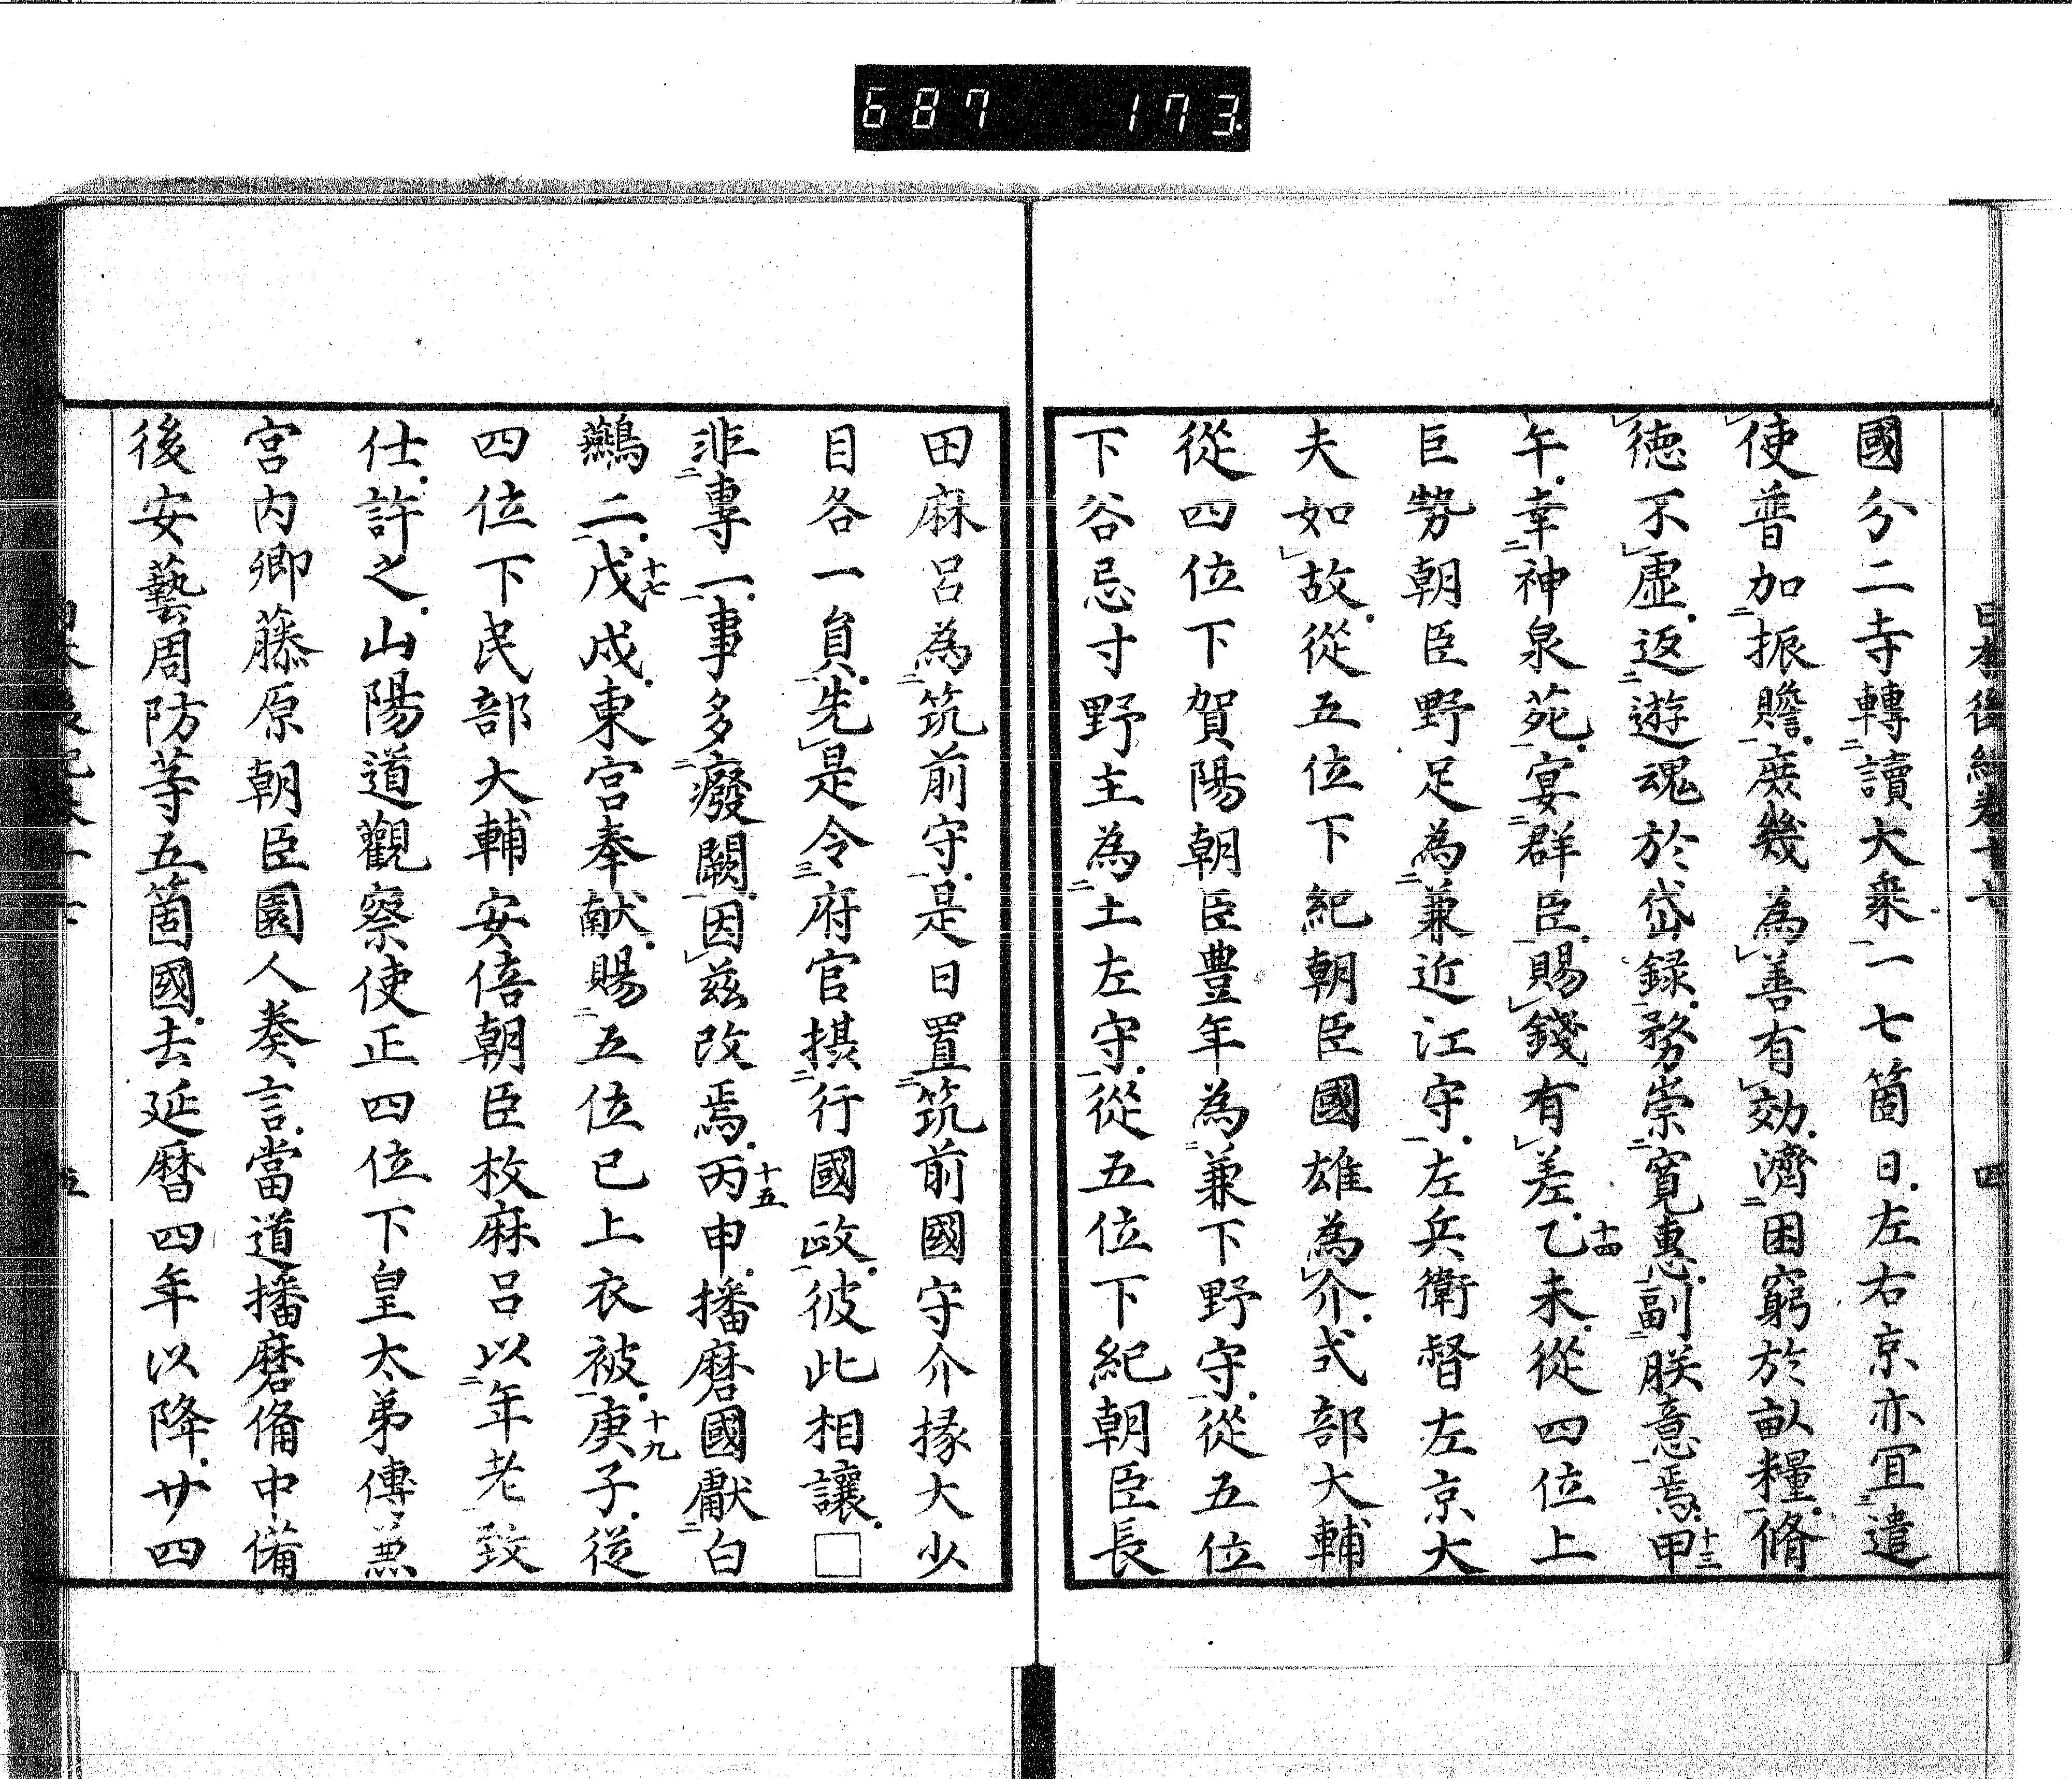 687 173
日本後紀卷十七 四
國分二寺轉讀大衆一七箇日左右京亦冝遣
使普加振贍庻幾為善有効濟困窮於畝糧脩
徳不虚返遊魂於岱録務崇寛惠副朕意焉甲十三
午幸神泉苑宴群臣賜錢有差乙十四未從四位上
巨勢朝臣野足為兼近江守左兵衛督左京大
夫如故從五位下紀朝臣國雄為介式部大輔
從四位下賀陽朝臣豊年為兼下野守從五位
下谷忌寸野主為土左守從五位下紀朝臣長
田麻呂為筑前守是日置筑前國守介掾大少
目各一員先是令府官摂行國政彼此相讓□
非專一事多癈闕因茲改焉丙十五申播磨國獻白
鷰二戊十七戌東宮奉献賜五位已上衣被庚十九子從
四位下民部大輔安倍朝臣枚麻呂以年老致
仕許之山陽道觀察使正四位下皇太弟傅兼
宮内卿藤原朝臣園人奏言當道播磨俻中備
後安藝周防等五箇國去延暦四年以降廿四
五